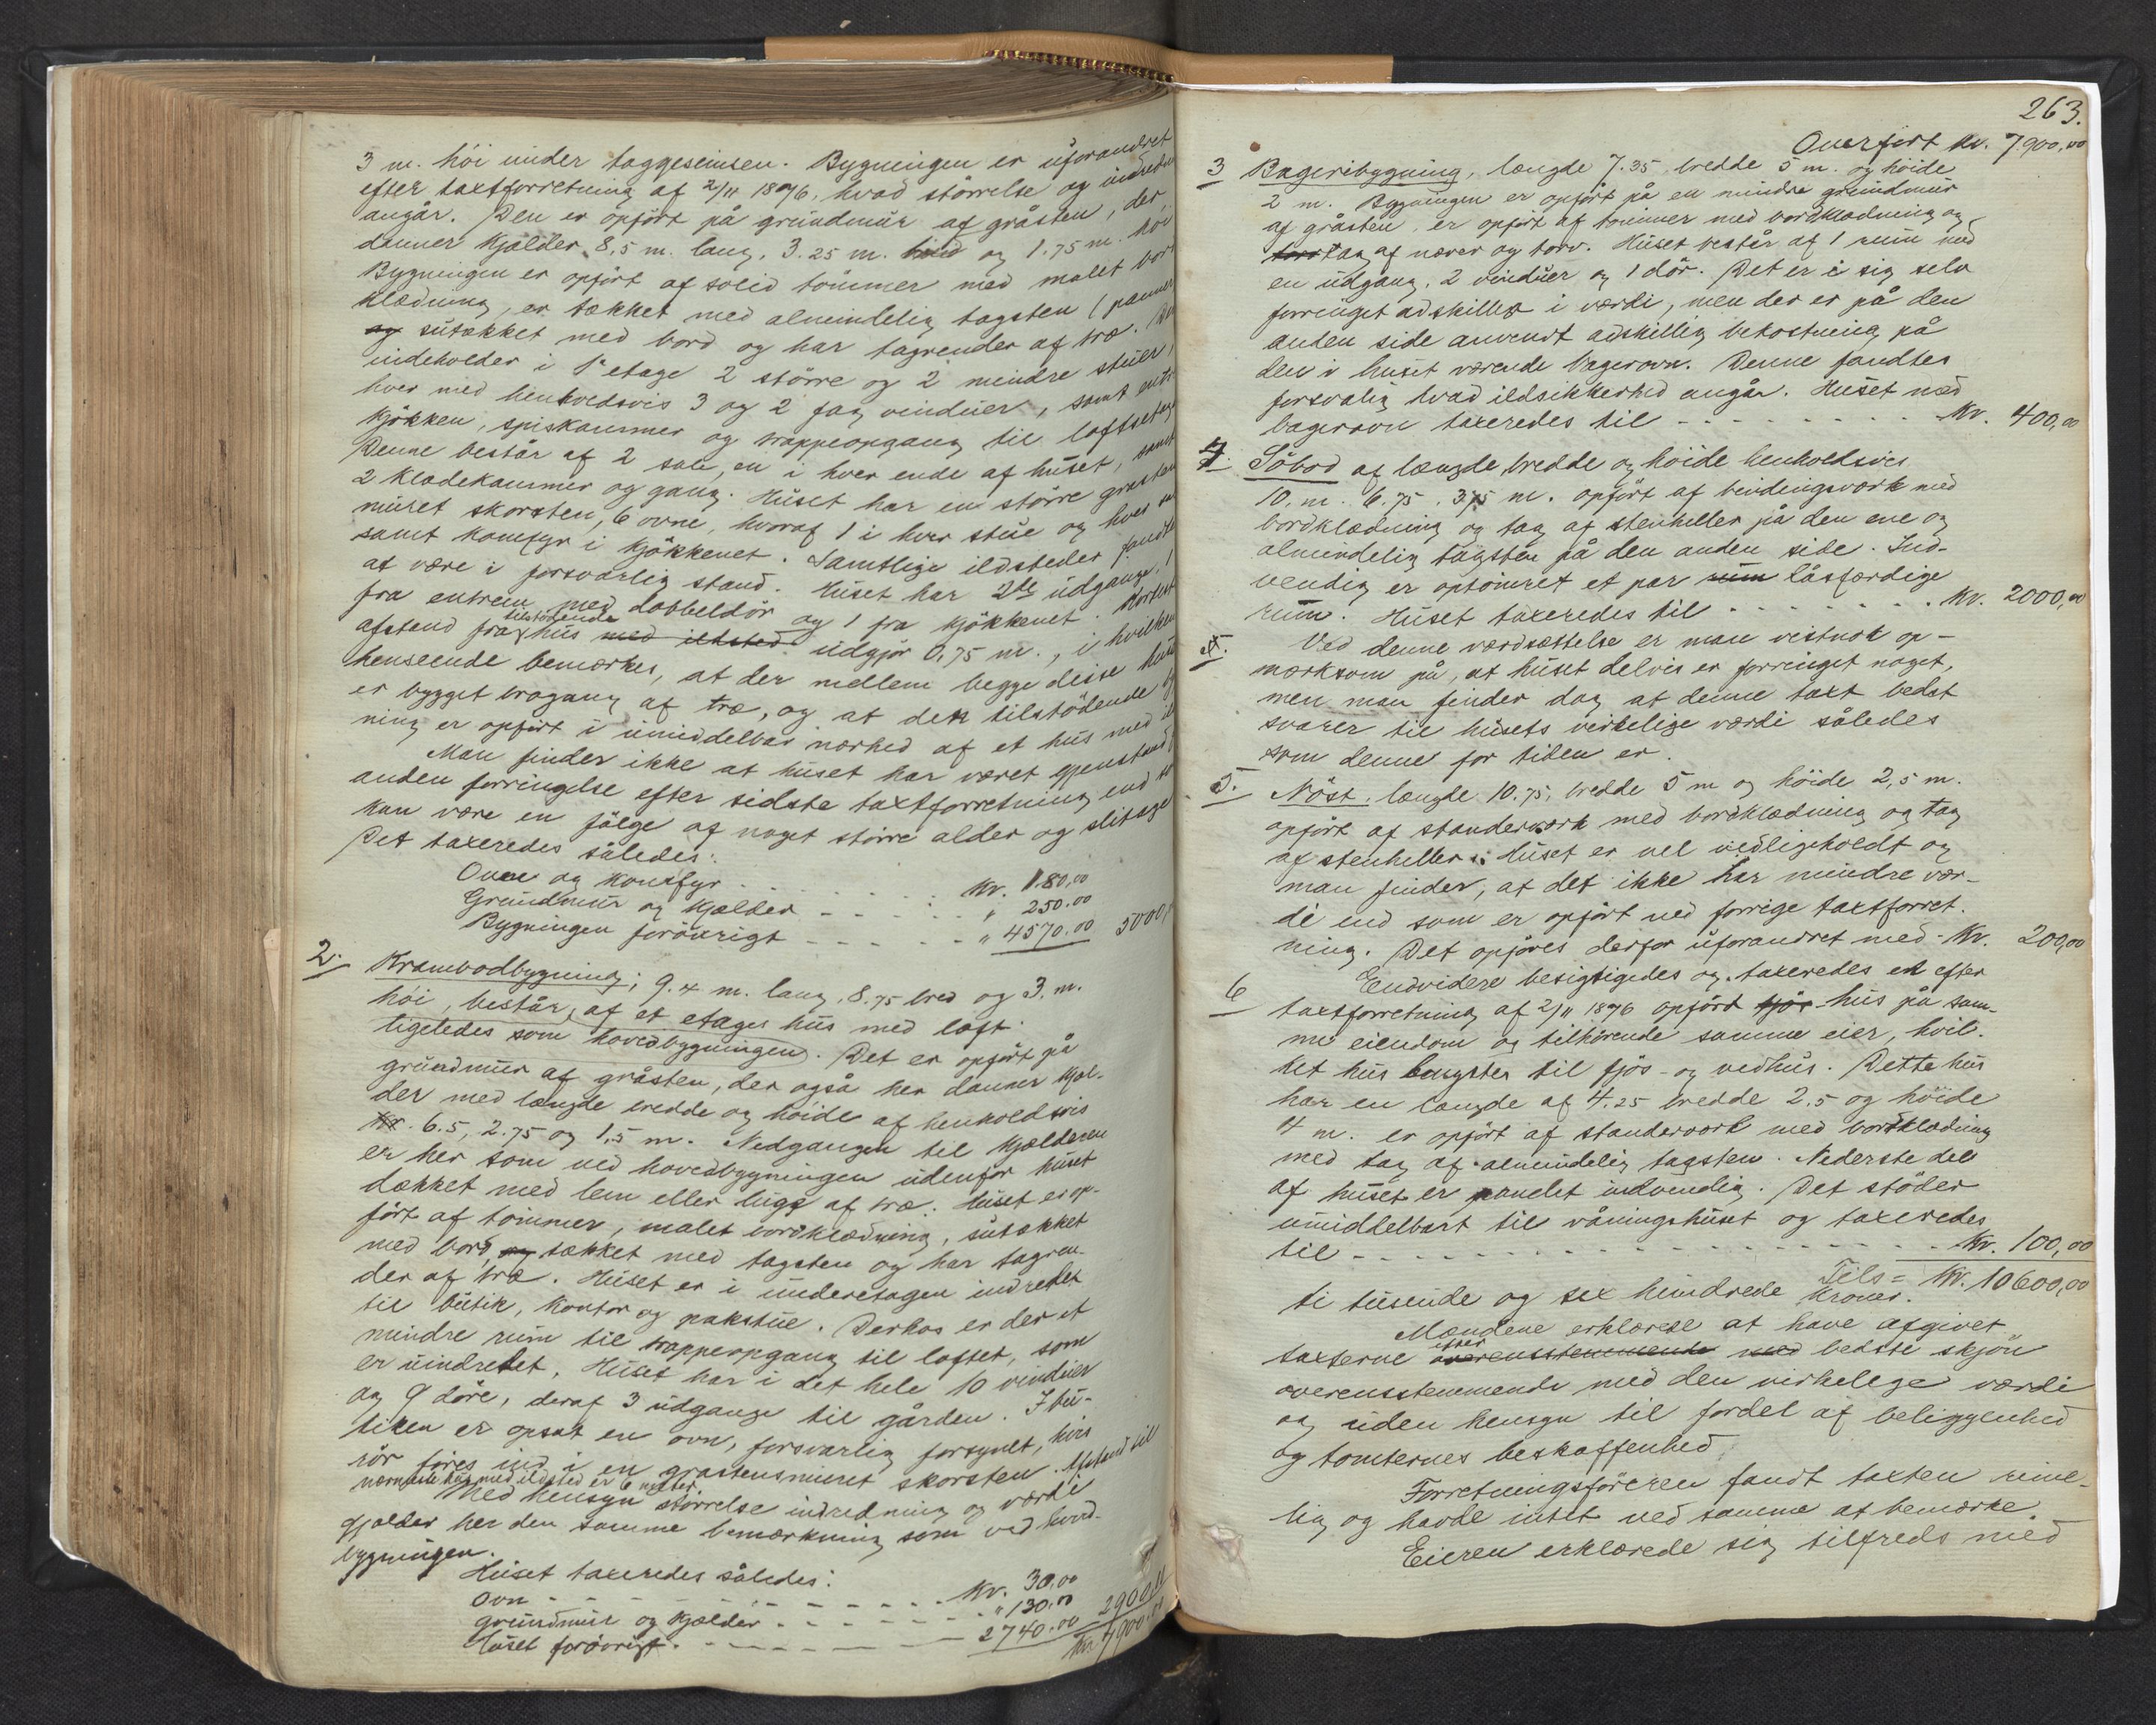 3 m. höi under taggesimsen. Bygningen er uforandret
efter taxtforretning af 2/11 1876, hvad störrelse og indredn
angår. Den er opfört på grundmur af gråsten, der
danner Kjælder, 8,5 m. lang, 3.25 m. bred og 1.75 m. höi
Bygningen er opfört af solid tömmer med malet bord
klædning, er tækket med almindelig tagsten (panner
og sutækket med bord og har tagrender af træ. Den
indeholder i 1ste etage 2 större og 2 mindre stuer,
hver med henholdsvis 3 og 2 fag vinduer, samt entre
Kjökken, spiskammer og trappeopgang til loftsetage
Denne består af 2 sale, en i hver ende af huset, samt
2 klædekammer og gang. Huset har en större grasten
muret skorsten, 6 ovne, hvoraf 1 i hver stue og hver sal
samt Komfyr i Kjökkenet. Samtlige ildsteder fandtes
at være i forsvarlig stand. Huset har 2de udgange, 1
fra entreen med dobbeldör og 1 fra Kjökkenet. Kortest
afstand fra tilstödende hus med ildsted udgjör 0,75 m., i hvilken
henseende bemærkes, at der mellem begge disse huse
er bygget brogang af træ, og at den tilstödende byg
ning er opfört i umiddelbar nærhed af et hus med il
Man finder ikke at huset har været gjenstand f
anden forringelse efter sidste taxtforretning end so
kan være en fölge af noget större alder og slitage
Det taxeredes således:
Ovne og Komfyr . . . . . Kr. 180,00
Grundmur og Kjælder - - - - - " 250.00
Bygningen forövrigt - - - - - " 4570.00 5000,
2. Krambodbygning; 9.4 m. lang, 8.75 bred og 3. m.
höi, består, af et etages hus med loft
ligeledes som hovedbygningen. Det er opfört på
grundmur af gråsten, der også her danner Kjæl-
der med længde bredde og höide af henholdsvis
Kr. 6.5, 2.75 og 1,5 m. Nedgangen til Kjælderen
er her som ved hovedbygningen udenfor huset
dækket med lem eller luge af træ. Huset er op-
fört af tömmer, malet bordklædning, sutækket
med bord, og tækket med tagsten og har tagren-
der af træ. Huset er i underetagen indredet
til butik, Kontor og pakstue. Derhos er der et
mindre rum til trappeopgang til loftet, som
er uindredet. Huset har i det hele 10 vinduer
og 9 döre, deraf 3 udgange til gården. I bu-
tiken er opsat en ovn, forsvarlig forsynet, hvis
rör föres ind i en grastensmuret skorsten. Afstand til
nærmeste hus med ildsted er 6 meter
Med hensyn störrelse indredning og værdi
gjælder her den samme bemærkning som ved hoved-
bygningen.
Huset taxeredes således:
Ovn - - - - - - - - - Kr. 30,00
grundmur og Kjælder - - - - - " 130,00
Huset forövrigt. - - - - - 2740.00 2900,00
Kr. 7900.00
263.
Overfört Kr. 7.900,00
3 Bageribygning, længde 7.35, bredde 5 m. og höide
2 m. Bygningen er opfört på en mindre grundmur
af gråsten, er opfört af tömmer med bordklædning og
torv tag af næver og torv. Huset består af 1 rum med
en udgang, 2 vinduer og 1 dör. Det er i sig selv
forringet adskilligt i værdi, men der er på den
anden side anvendt adskillig bekostning på
den i huset værende bagerovn. Denne fandtes
forsvalig hvad ildsikkerhed angår. Huset med
bagerovn taxeredes til - - - - - - - Kr. 400,00
4. Söbod af længde, bredde og höide henholdsvis
10. m. 6.75. 3,75 m. opfört af bindingsværk med
bordklædning og tag af stenheller på den ene og
almindelig tagsten på den anden side. Ind-
vendig er optömret et par rum låsfærdige
rum. Huset taxeredes til - - - - - - - Kr. 2000,00
Ved denne værdsættelse er man vistnok op-
mærksom på, at huset delvis er forringet noget,
men man finder dog at denne taxt bedst
svarer til husets virkelige værdi således
som denne for tiden er.
5. Nöst, længde 10.75, bredde 5 m og höide 2,5 m.
opfört af standerværk med bordklædning og tag
af stenheller. Huset er vel vedligeholdt og
man finder, at det ikke har mindre vær-
di end som er opfört ved forrige taxtforret-
ning. Det opföres derfor uforandret med - Kr. 200,00
6 Endvidere besigtigedes og taxeredes et efter
taxtforretning af 2/11 1876 opfört fjös hus på sam-
me eiendom og tilhörende samme eier, hvil-
ket hus benyttes til fjös- og vedhus. Dette hus
har en længde af 4.25 bredde 2.5 og höide
4 m. er opfört af standerværk med bordklædning
med tag af almindelig tagsten. Nederste del
af huset er panelet indvendig. Det stöder
umiddelbart til våningshuset og taxeredes
til - - - - - - - - - - - Kr. 100,00
Tils = Kr. 10600,00
ti tusende og sex hundrede Kroner.
Mændene erklærede at have afgivet
taxterne efter overensstemmende med bedste skjön
overensstemmende med den virkelige værdi
og uden hensyn til fordel af beliggenhed
og tomternes beskaffenhed.
Forretningsföreren fandt taxten rime-
lig og havde intet ved samme at bemærke.
Eieren erklærede sig tilfreds med